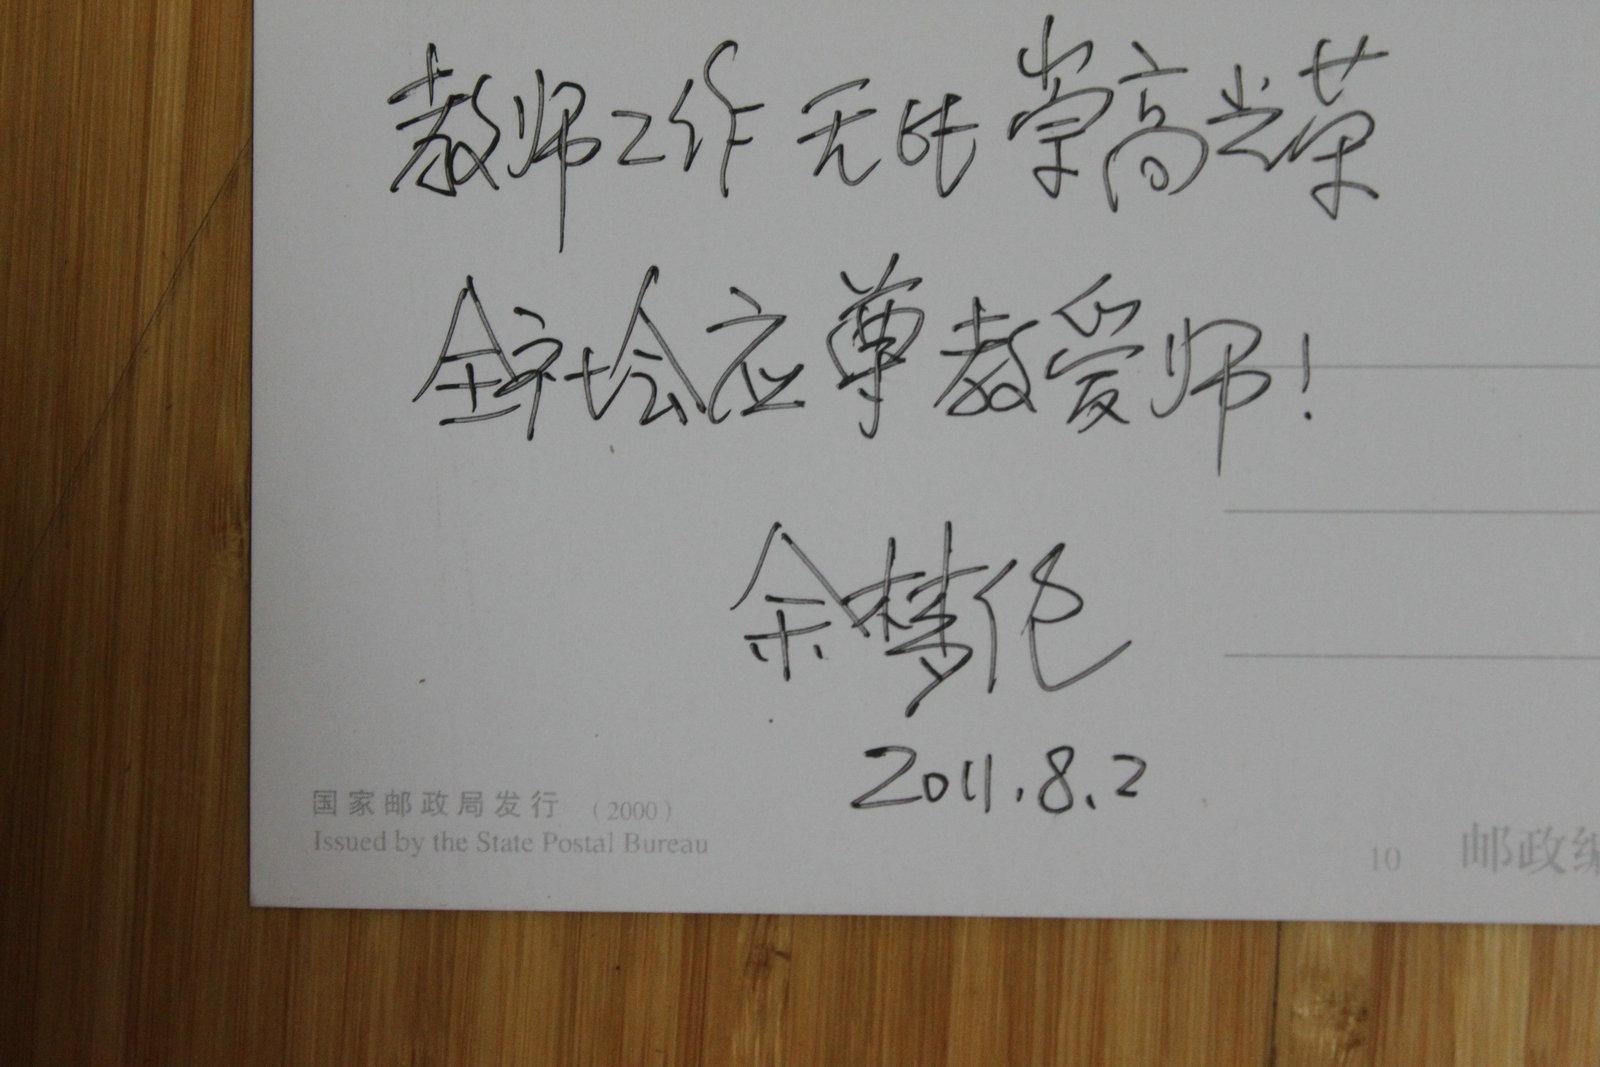 教师工作无比崇高光荣
全社会应尊教爱师！
余梦伦
2011.8.2
国家邮政局发行 （2000）
Issued by the State Postal Bureau
10 邮政编